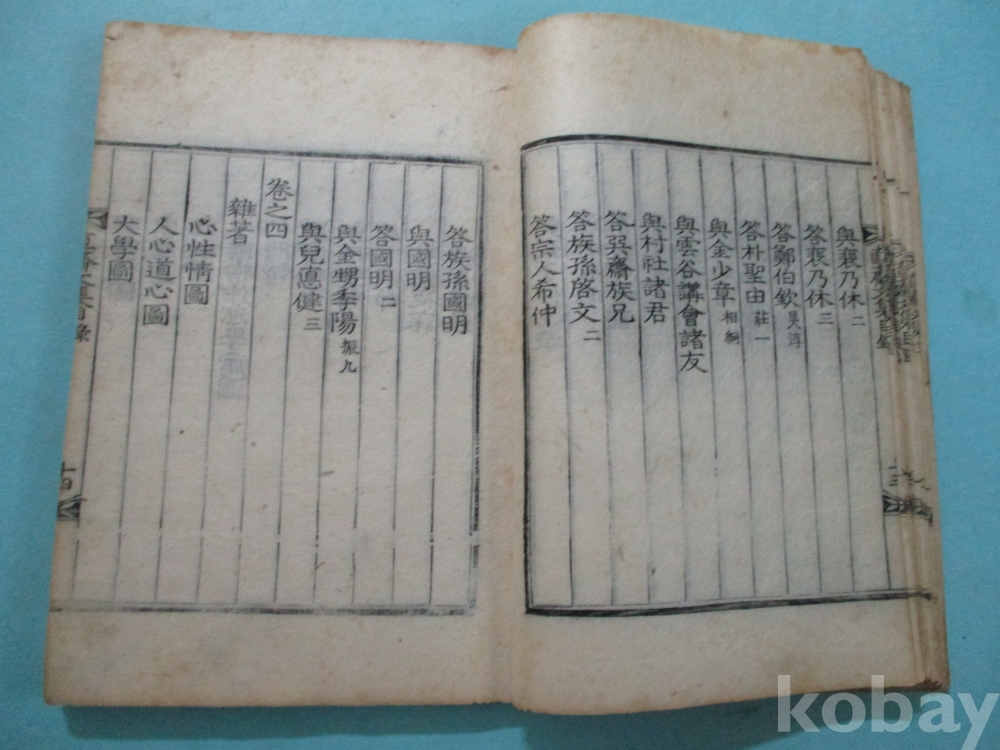 與裵乃休 二
答裵乃休 三
答鄭伯欽 昊淳
答朴聖由 莊一
與金少章 相
與雲谷講會諸友
與村社諸君
答巽齋族兄
答族孫啓文 二
答宗人希仲
答族孫國明
與國明
答國明 二
與金甥季陽 振九
與兒悳健 三
卷之四
雜著
心性情圖
人心道心圖
大學圖
十四
kobay